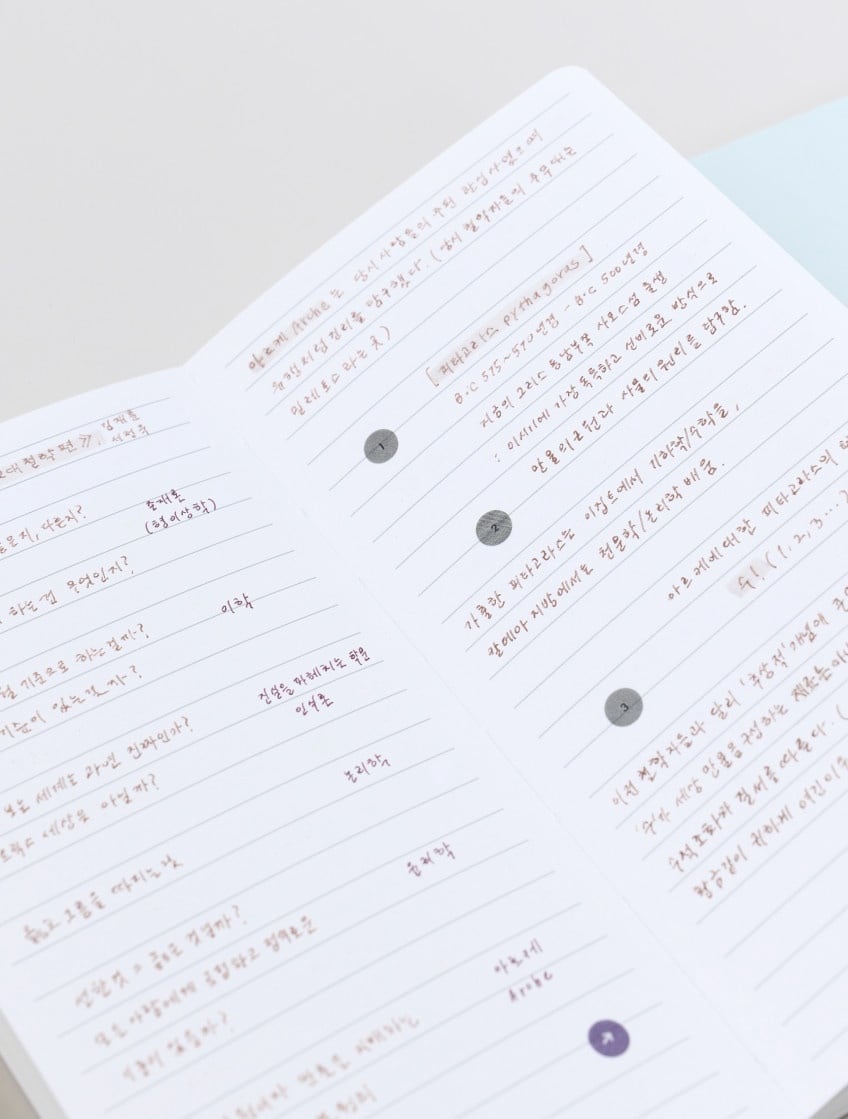 고대철학편》, 김재훈
서정욱
존재론
른지, 다른지?
(형이상학)
하는 건 무엇인지?
기준으로 하는걸까?
미학
기준이 있는 것 까?
진실을 파헤치는 학문
인식론
보는 세계는 과연 진짜인가?
세상은 아닐까?
논리학
옳고 그름을 따지는 것
윤리학
선한 것 = 옳은 것일까?
모든 사람에게 공평하고 정의로운
기준이 있을까?
아르케
Arche
아르케 Arche는 당시 사람들의 주된 관심사였으며
유행처럼 진리를 탐구했다. (당시 철학자들의 주무대는
밀레토스라는 곳)
[피타고라스 Pythagoras]
B.C 575-570년경 - B.C 500년경
지금의 그리스 동남부쪽 사모스섬 출생
: 이 시기에 가장 독특하고 신비로운 방식으로
만물의 근원과 사물의 원리를 탐구함.
1
2
가출한 피타고라스는 이집트에서 기하학/수학을,
칼데아 지방에서는 천문학/논리학 배움.
아르케에 대한 피타고라스의
수! (1, 2, 3...
3
이전 철학자들과 달리 '추상적' 개념에
'수'가 세상 만물을 구성하는 재료는 아니
수적 조화와 질서를 따른다. (
황금값이 귀하게 여긴 이유